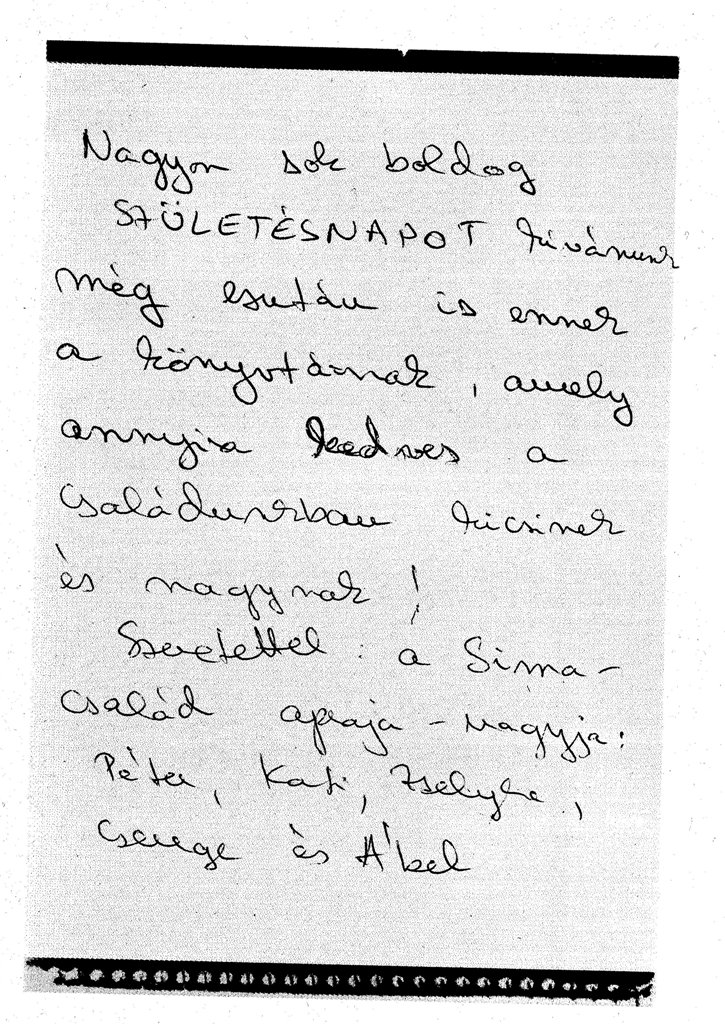 Nagyon sok boldog
SZÜLETÉSNAPOT kívánunk
még ezután is ennek
a könyvtárnak, amely
annyira kedves a
családunkban kicsinek
és nagynak!
Szeretettel: a Sima-
család apraja-nagyja:
Péter, Kati, Zselyke,
Csenge és Ábel